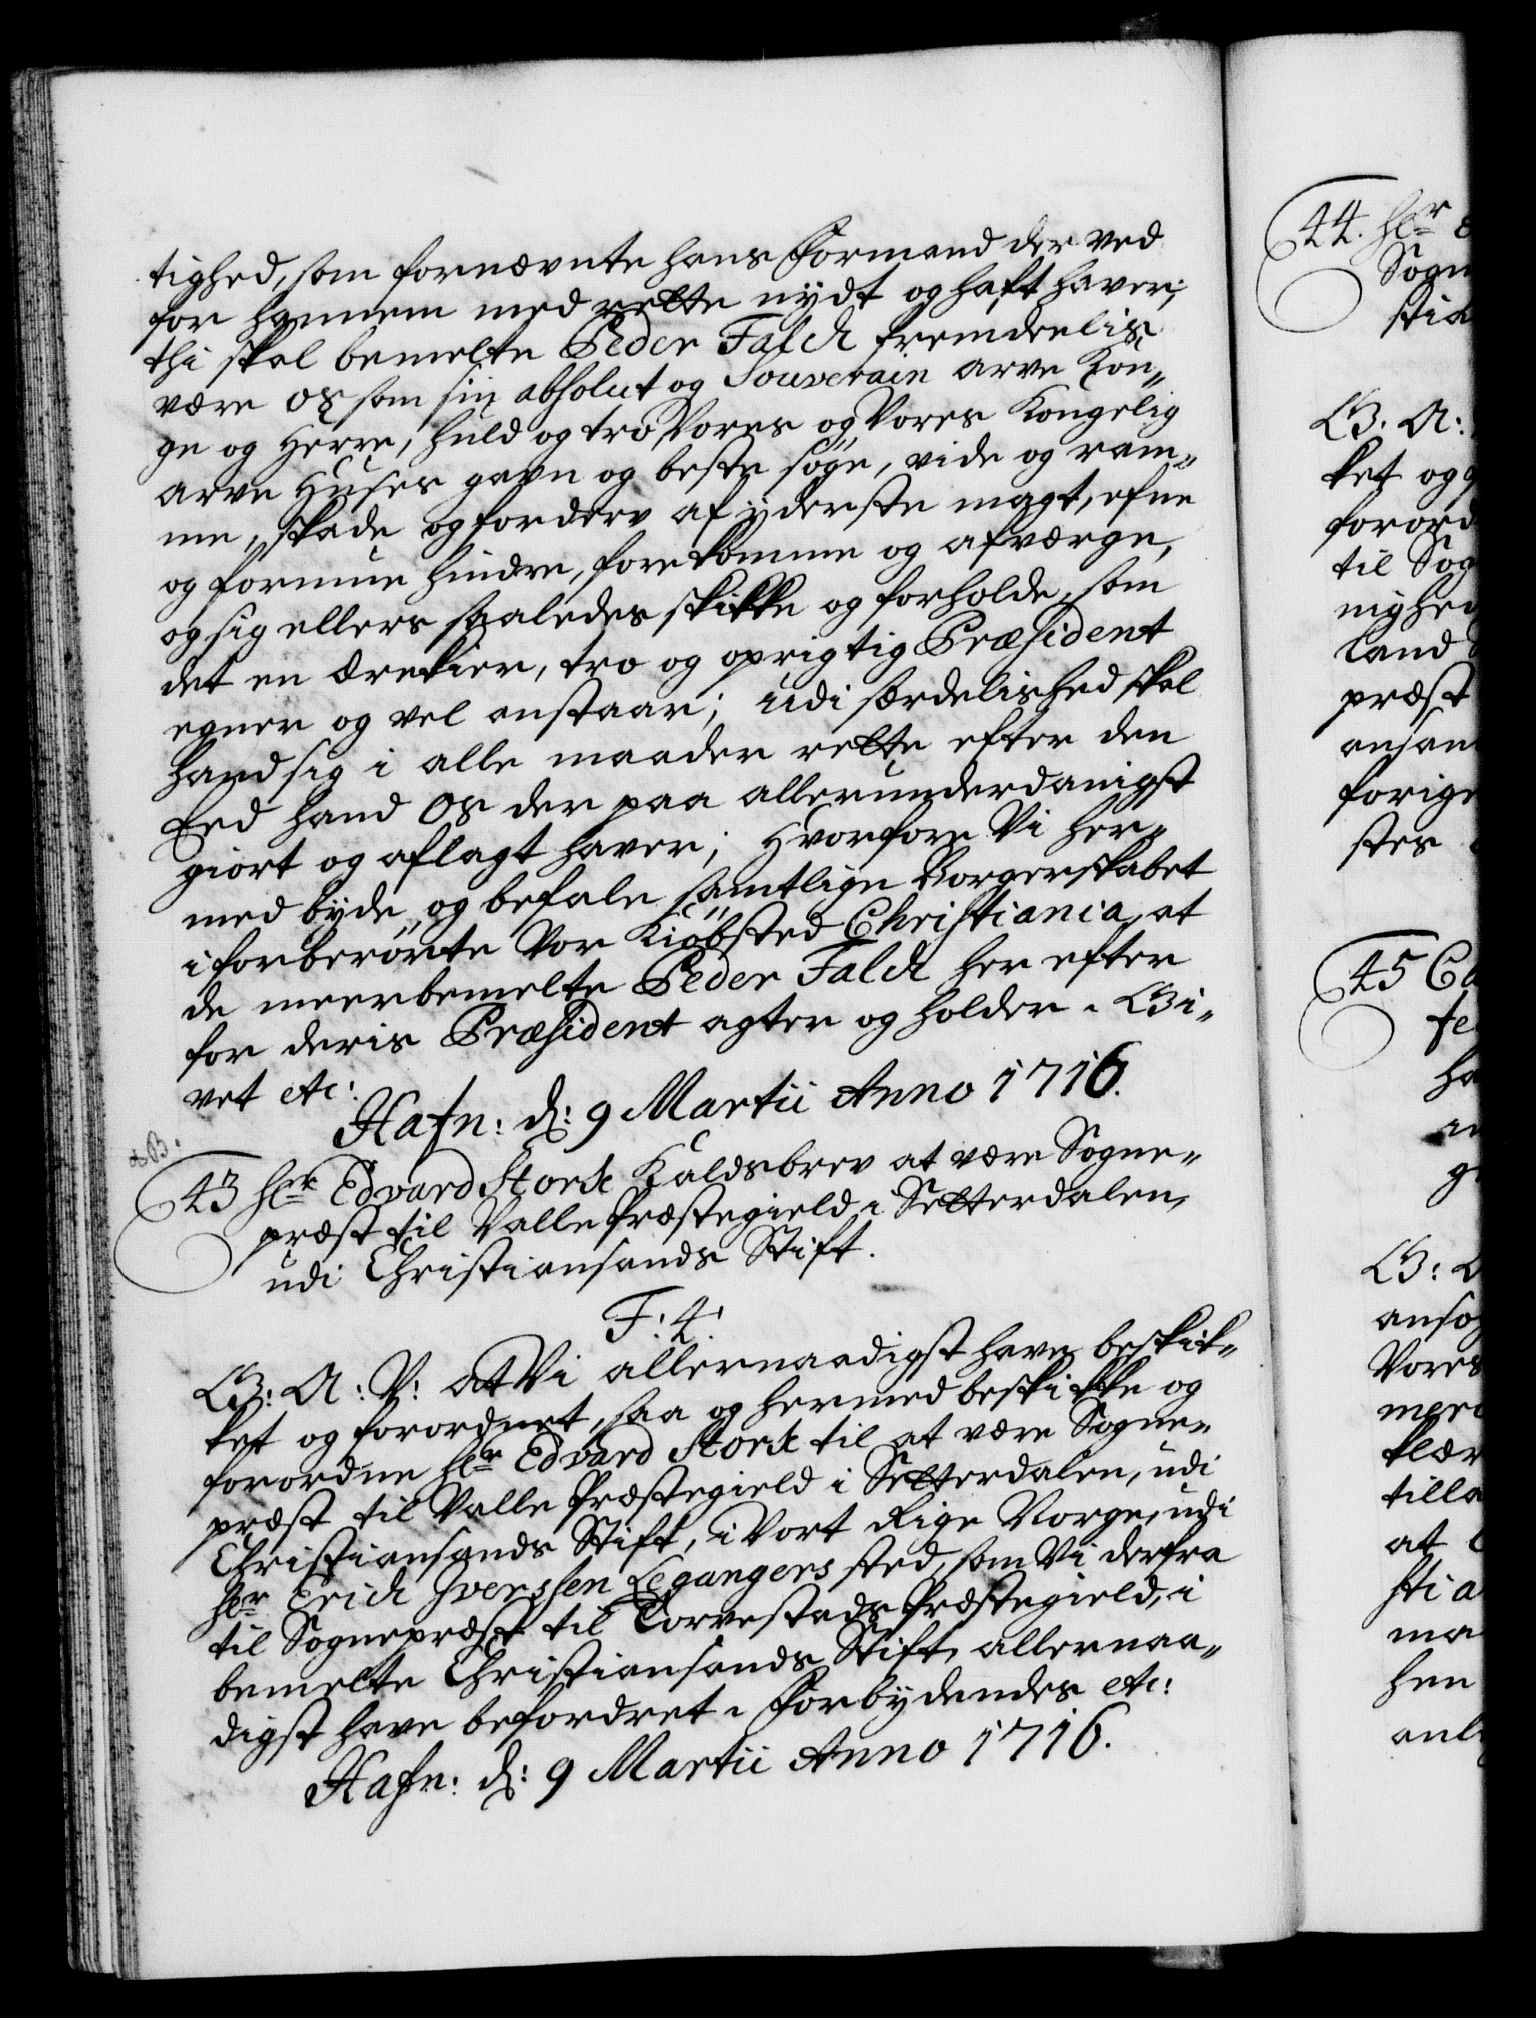 tighed, som fornævnte hans Formand der ved
for hannem med rette nÿdt og haft haver;
thi skal bemelte Peder Falch fremdeelis
være os som sin absolut og Souverain arve Kon„
ge og Herre, huld og tro Vores og Vores Kongelig
arve Huses gavn og beste søge, vide og ram„
me, skade og forderv af ÿderste magt, efne
og formue hindre, forekomme og afværge,
og sig ellers saaledes skikke og forholde, som
det en ærekier, tro og oprigtig Præsident
egner og vel anstaar; udi særdelished skal
hand sig i alle maader rette efter den
Eed hand Os der paa allerunderdanigst
giort og aflagt haver; Hvorfore Vi her„
med byde og befale samtlige Borgerskabet
i forberørte Vor Kiøbsted Christiania, at
de meerbemelte Peder Falch her efter
for deris Præsident agter og holder. Gi„
vet etc:
Hafn: d: 9 Martii Anno 1716.
NB.
43 Hr Edvard Storck Kaldsbrev at være Sogne„
præst til Valle Præstegield i Setterdalen,
udi Christiansands Stift.
F: 4:
G: A: V: At Vi allernaadigst have beskik„
ket og forordnet, saa og hermed beskikke og
forordne Hr Edvard Storck til at være Sogne„
præst til Valle Præstegield i Setterdalen, udi
Christiansands Stift, i Vort Rige Norge, udi
Hr Erich Iverssen Leganger's sted, som Vi derfra
til Sognepræst til Torvestads Præstegield, i
bemelte Christiansands Stift, allernaa„
digst have befordret. Forbydendes etc:
Hafn: d: 9 Martii Anno 1716.
44. Hr
Sogn
G. A:
ket og
forord
til Sog
nighed
Land
præst
ansan
forige
stes
45
ha
G:
ansø
Vores
klær
tilla
at
ma
hen